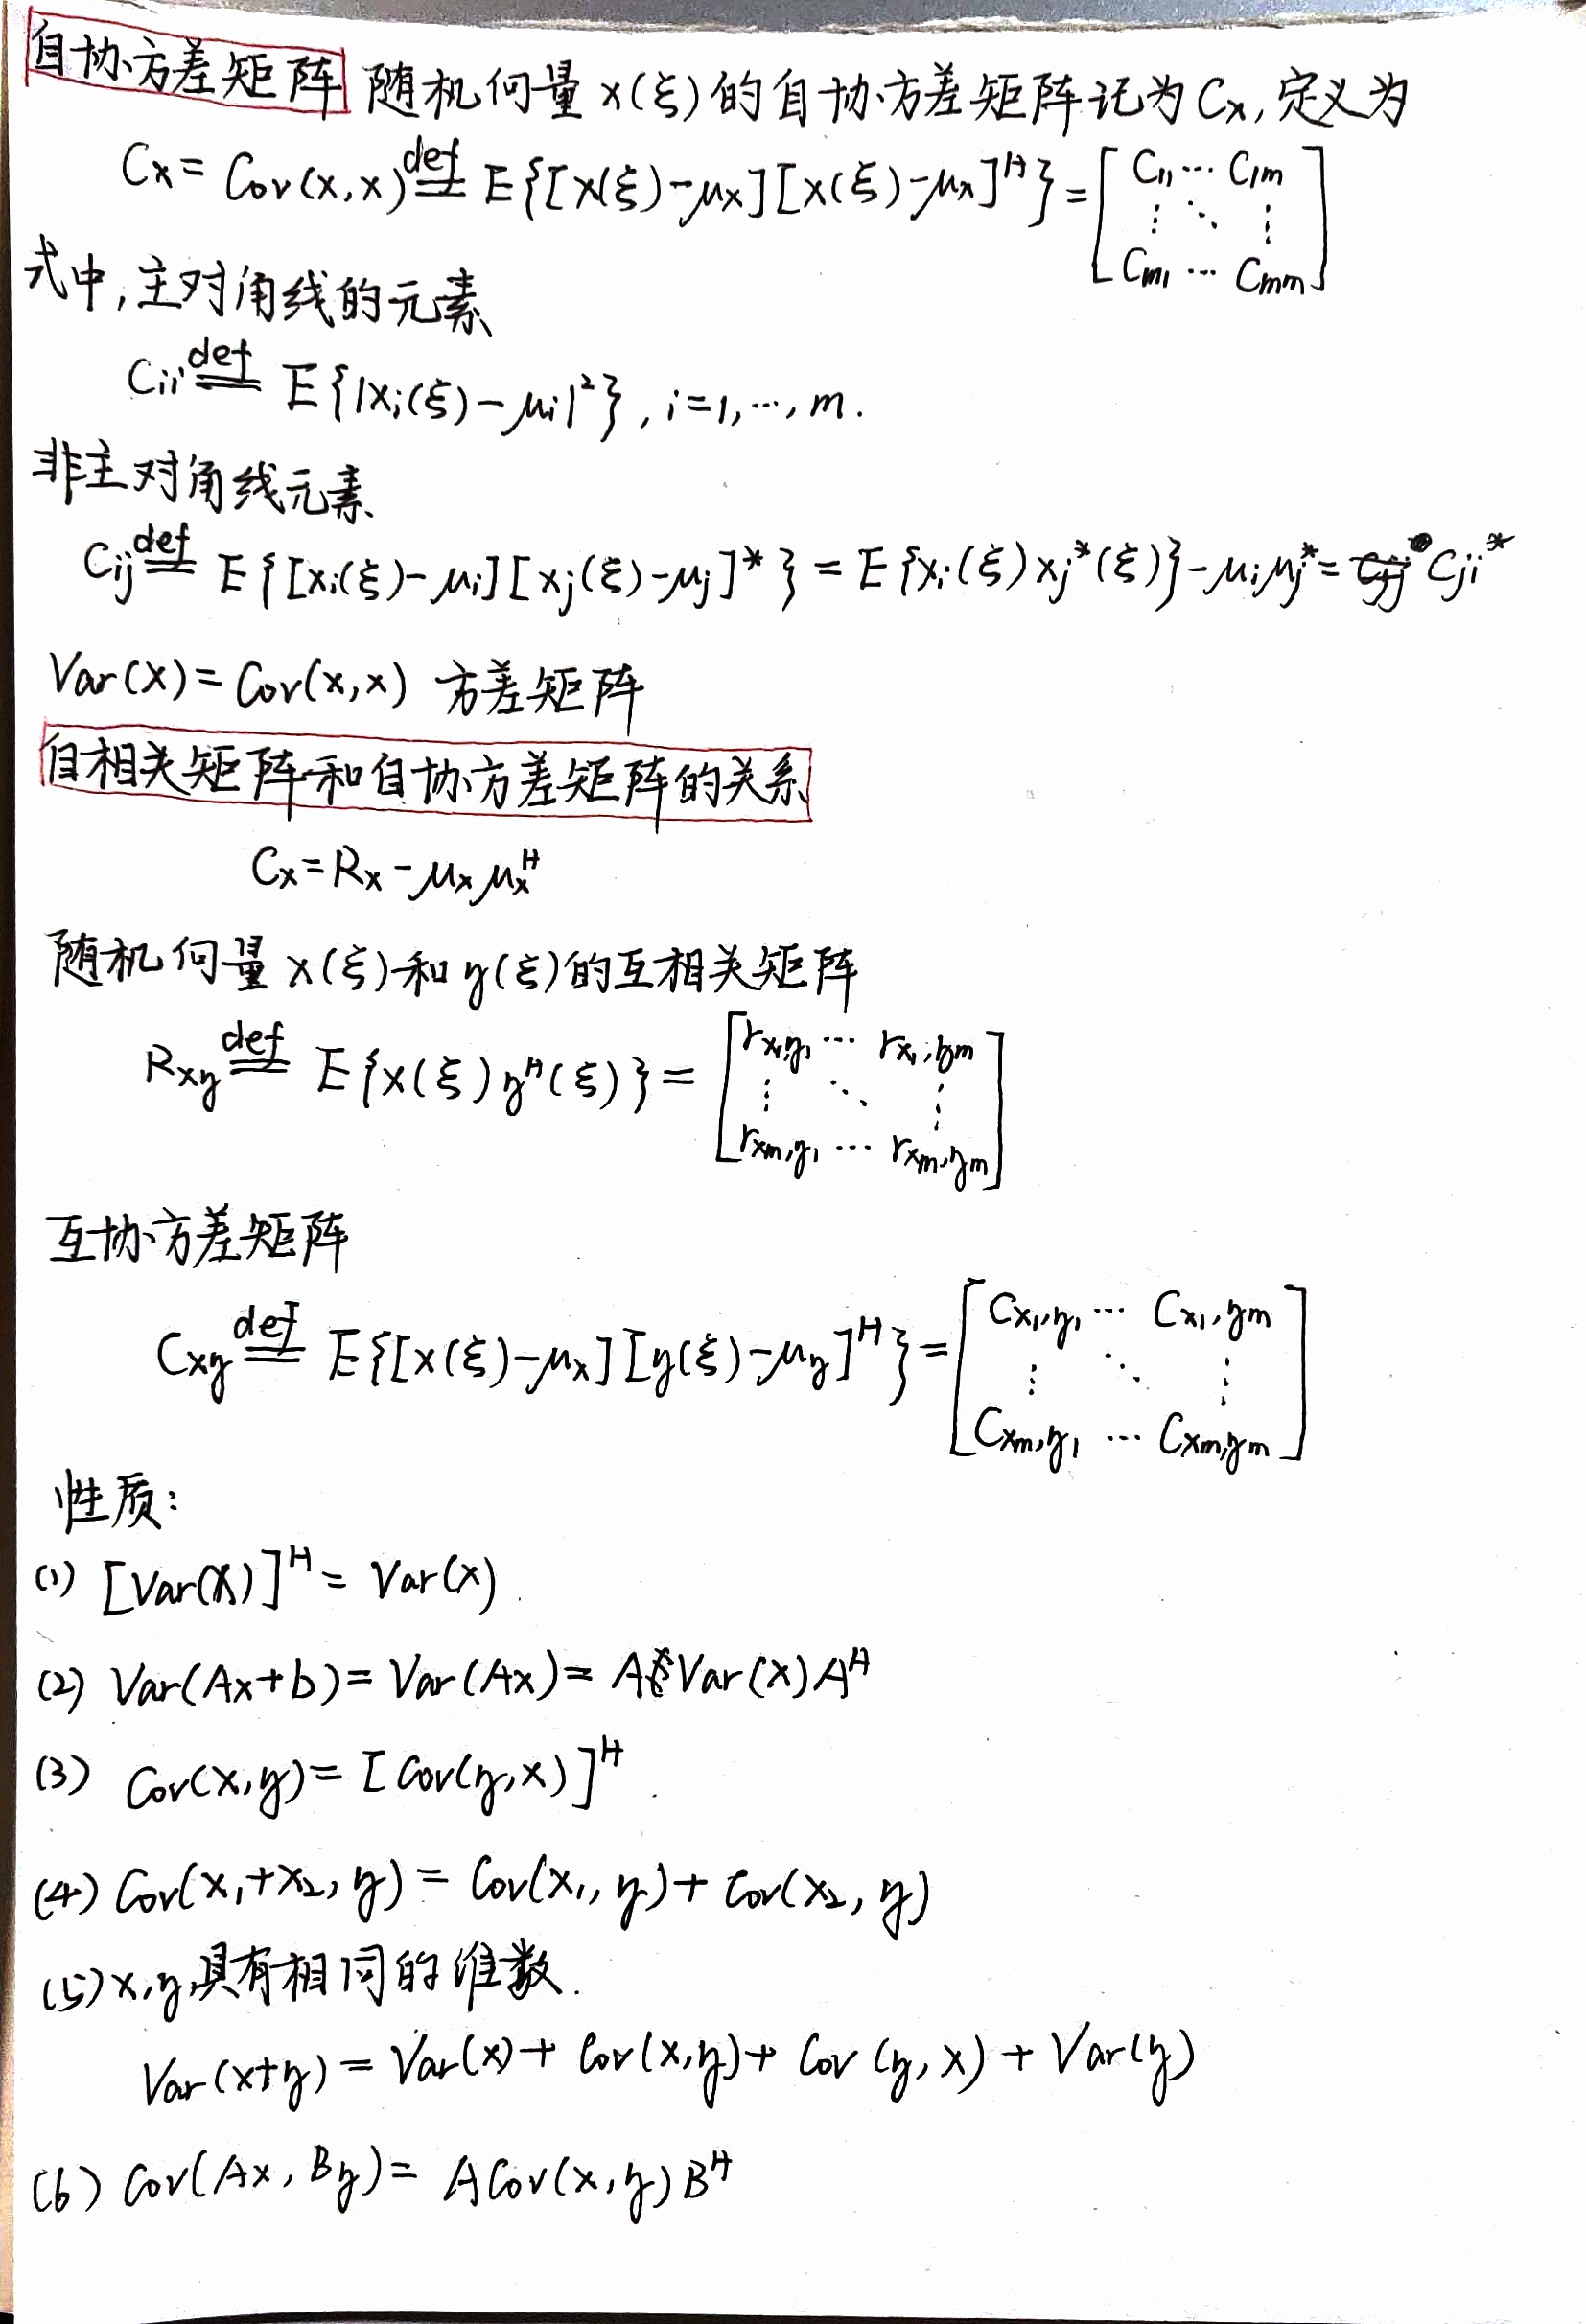 自协方差矩阵 随机向量 x(ξ) 的自协方差矩阵记为 Cx, 定义为
Cx = Cov(x,x) \overset{def}{=} E{[x(ξ)-μx][x(ξ)-μx]^H} = [C11 ⋯ C1m; ⋮ ⋱ ⋮; Cm1 ⋯ Cmm]
式中,主对角线的元素
Cii \overset{def}{=} E{|xi(ξ)-μi|^2}, i=1,⋯,m.
非主对角线元素
Cij \overset{def}{=} E{[xi(ξ)-μi][xj(ξ)-μj]^*} = E{xi(ξ)xj^*(ξ)} - μiμj^* = Cji^*
Var(x) = Cov(x,x) 方差矩阵
自相关矩阵和自协方差矩阵的关系
Cx = Rx - μx μx^H
随机向量 x(ξ) 和 y(ξ) 的互相关矩阵
Rxy \overset{def}{=} E{x(ξ)y^H(ξ)} = [r_{x1,y1} ⋯ r_{x1,ym}; ⋮ ⋱ ⋮; r_{xm,y1} ⋯ r_{xm,ym}]
互协方差矩阵
Cxy \overset{def}{=} E{[x(ξ)-μx][y(ξ)-μy]^H} = [C_{x1,y1} ⋯ C_{x1,ym}; ⋮ ⋱ ⋮; C_{xm,y1} ⋯ C_{xm,ym}]
性质:
(1) [Var(x)]^H = Var(x).
(2) Var(Ax+b) = Var(Ax) = AVar(x)A^H
(3) Cov(x,y) = [Cov(y,x)]^H.
(4) Cov(x1+x2, y) = Cov(x1, y) + Cov(x2, y)
(5) x,y具有相同的维数.
Var(x+y) = Var(x) + Cov(x,y) + Cov(y,x) + Var(y)
(6) Cov(Ax, By) = ACov(x,y)B^H